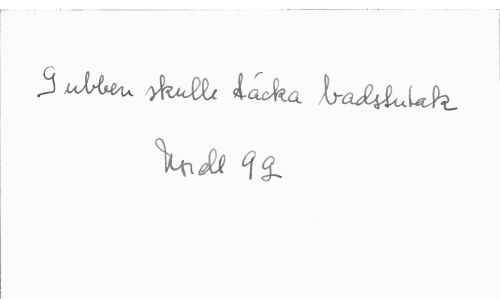 Gubben skulle täcka badstutak
Norde 99